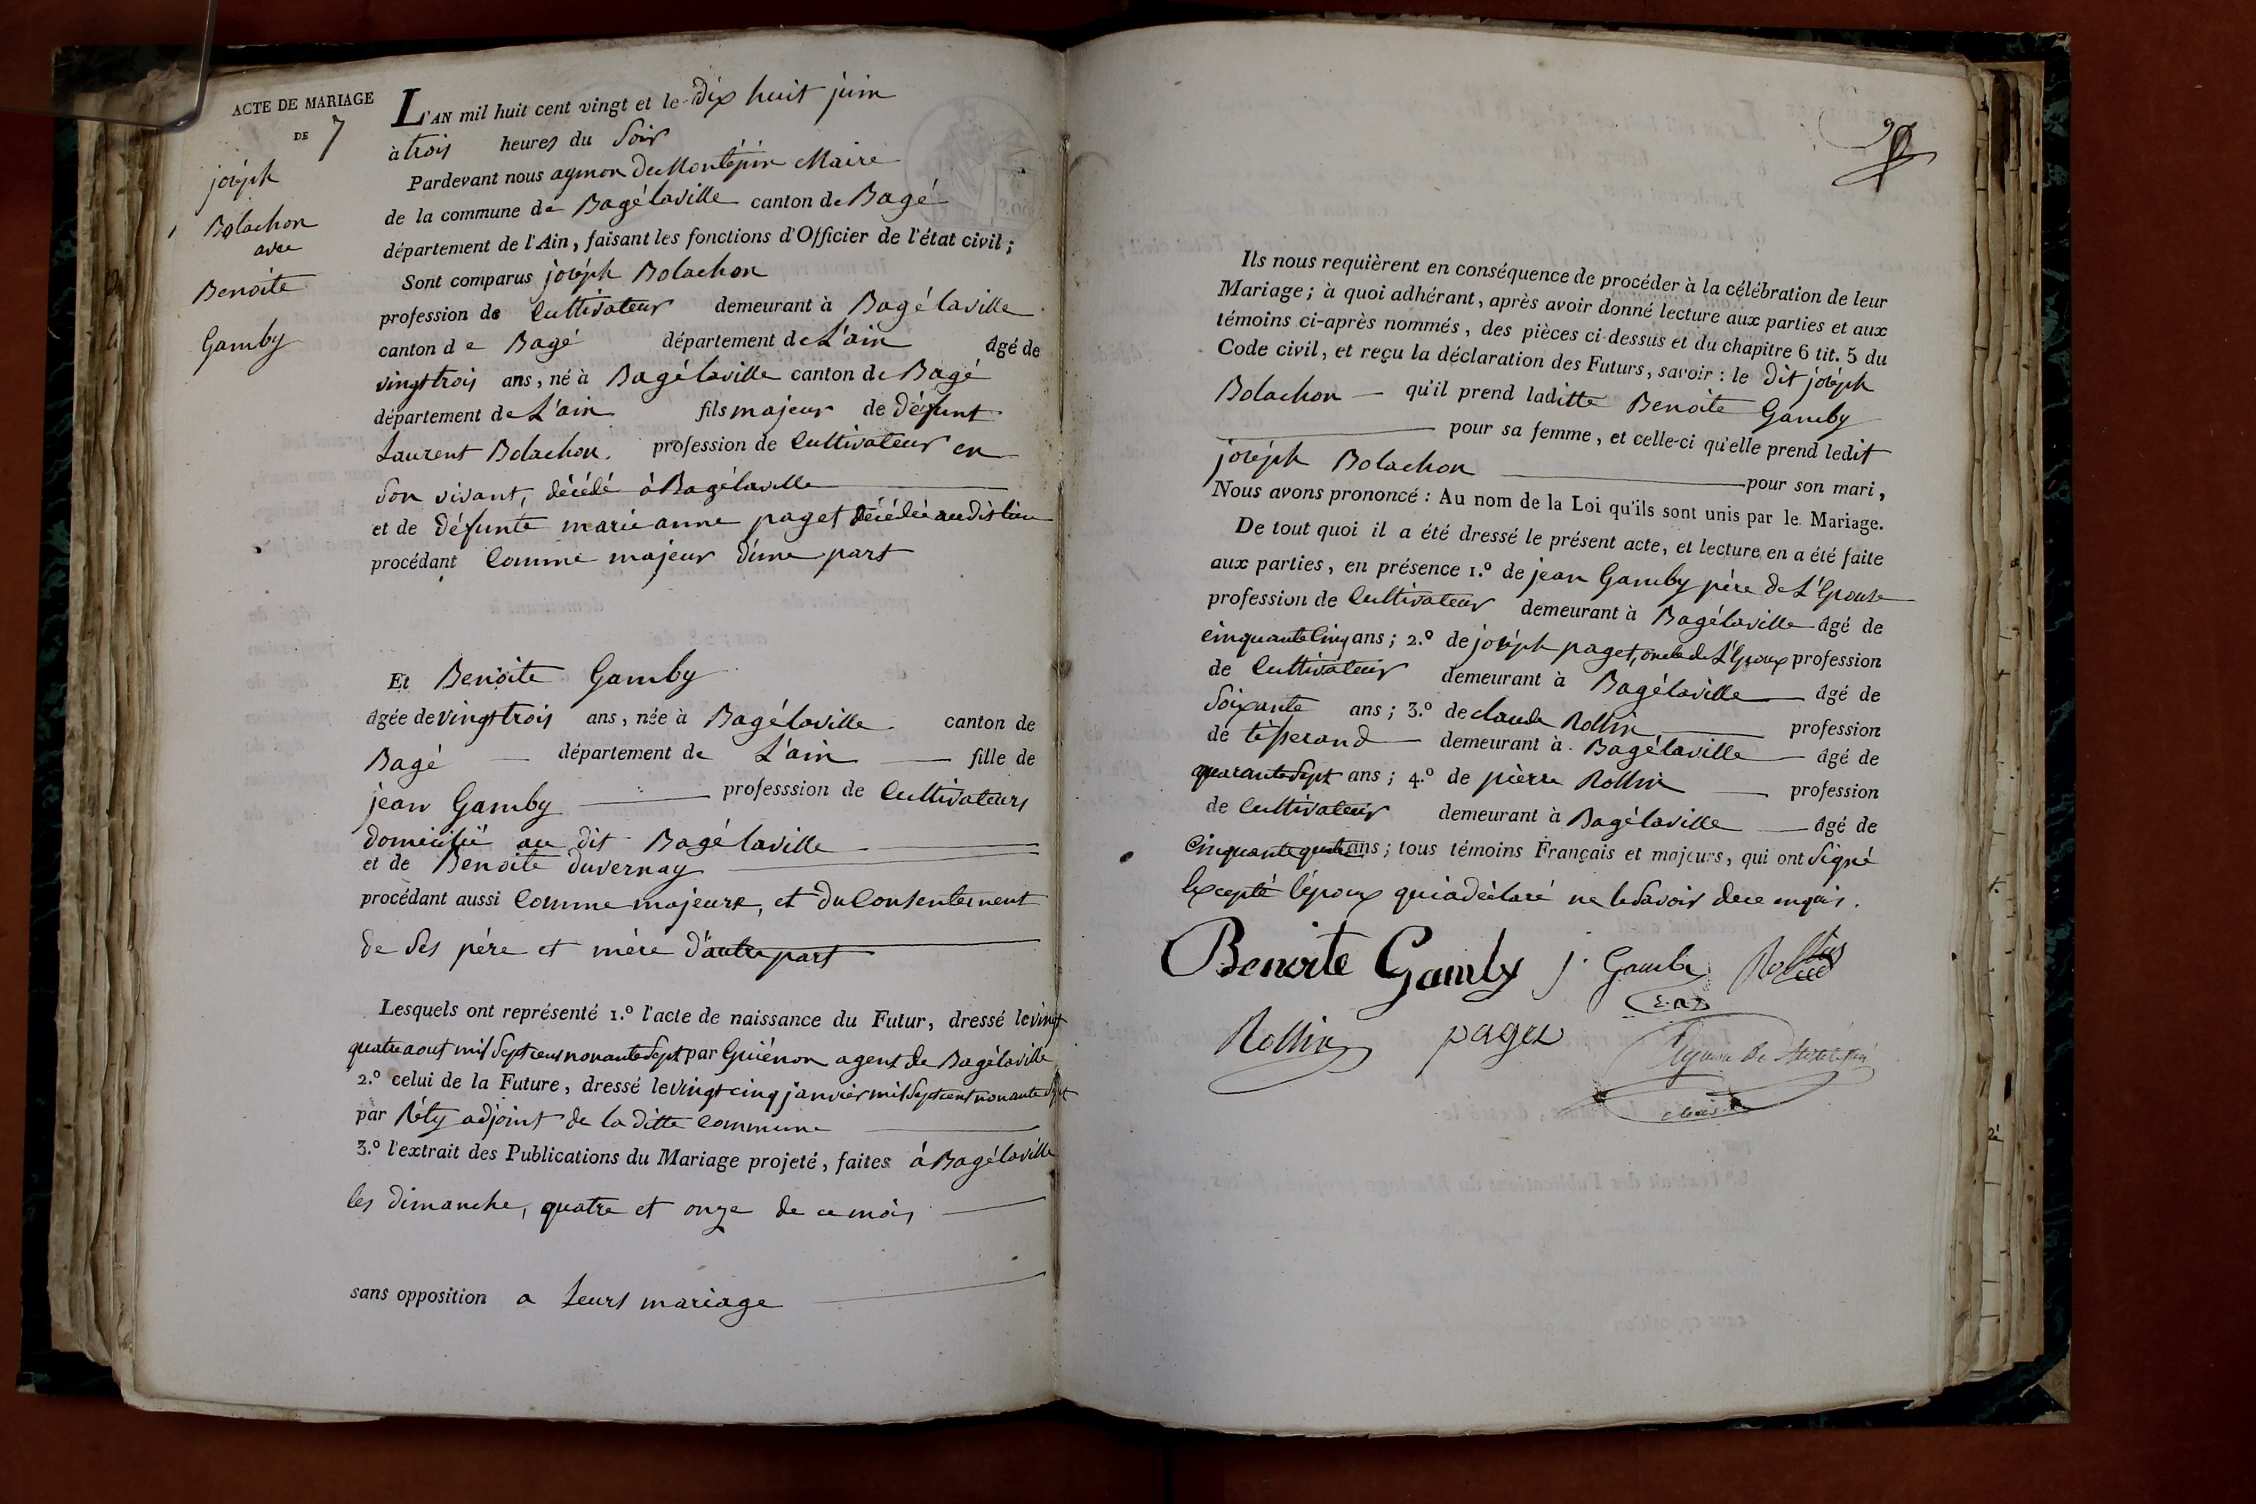 ACTE DE MARIAGE
DE 7
joséph
Bolachon
avec
Benoite
Gamby
L'AN mil huit cent vingt et le dix huit juin
à trois heures du Soir
Pardevant nous aymon de Montépin Maire
de la commune de Bagélaville canton de Bagé
département de l'Ain, faisant les fonctions d'Officier de l'état civil ;
Sont comparus joséph Bolachon
profession de Cultivateur demeurant à Bagélaville
canton de Bagé département de L'ain âgé de
vingt trois ans, né à Bagélaville canton de Bagé
département de L'ain fils majeur de défunt
Laurent Bolachon profession de Cultivateur en
Son vivant, décédé à Bagélaville
et de défunte marie anne paget décédée au dit lieu
procédant Comme majeur d'une part
Et Benoite Gamby
âgée de vingt trois ans, née à Bagélaville canton de
Bagé département de L'ain fille de
jean Gamby professsion de Cultivateurs
domicilié au dit Bagélaville
et de Benoite duvernay
procédant aussi Comme majeure, et du Consentement
de Ses père et mère d'autre part
Lesquels ont représenté 1.º l'acte de naissance du Futur, dressé le vingt
quatre aout mil Sept cens nonante Sept par Guiénon agent de Bagélaville
2.º celui de la Future, dressé le vingt cinq janvier mil Sept cent nonante Sept
par Réty adjoint de la ditte Commune
3.º l'extrait des Publications du Mariage projeté, faites à Bagélaville
les dimanche, quatre et onze de ce mois
sans opposition a Leurs mariage
Ils nous requièrent en conséquence de procéder à la célébration de leur
Mariage ; à quoi adhérant, après avoir donné lecture aux parties et aux
témoins ci-après nommés, des pièces ci-dessus et du chapitre 6 tit. 5 du
Code civil, et reçu la déclaration des Futurs, savoir : le dit joséph
Bolachon qu'il prend laditte Benoite Gamby
pour sa femme, et celle-ci qu'elle prend ledit
joséph Bolachon pour son mari,
Nous avons prononcé : Au nom de la Loi qu'ils sont unis par le Mariage.
De tout quoi il a été dressé le présent acte, et lecture en a été faite
aux parties, en présence 1.º de jean Gamby père de L'Epouse
profession de Cultivateur demeurant à Bagélaville âgé de
cinquante Cinq ans ; 2.º de joséph paget, oncle de L'Epoux profession
de Cultivateur demeurant à Bagélaville âgé de
Soixante ans ; 3.º de claude Rollin profession
de tésserand demeurant à Bagélaville âgé de
quarante Sept ans ; 4.º de pièrre Rollin profession
de Cultivateur demeurant à Bagélaville âgé de
Cinquante quatre ans ; tous témoins Français et majeurs, qui ont Signé
Excepté l'époux qui a déclaré ne le Savoir de ce enquis.
Benoite Gamby j. Gamby
Rollin paget
Aymon de Montépin
Maire